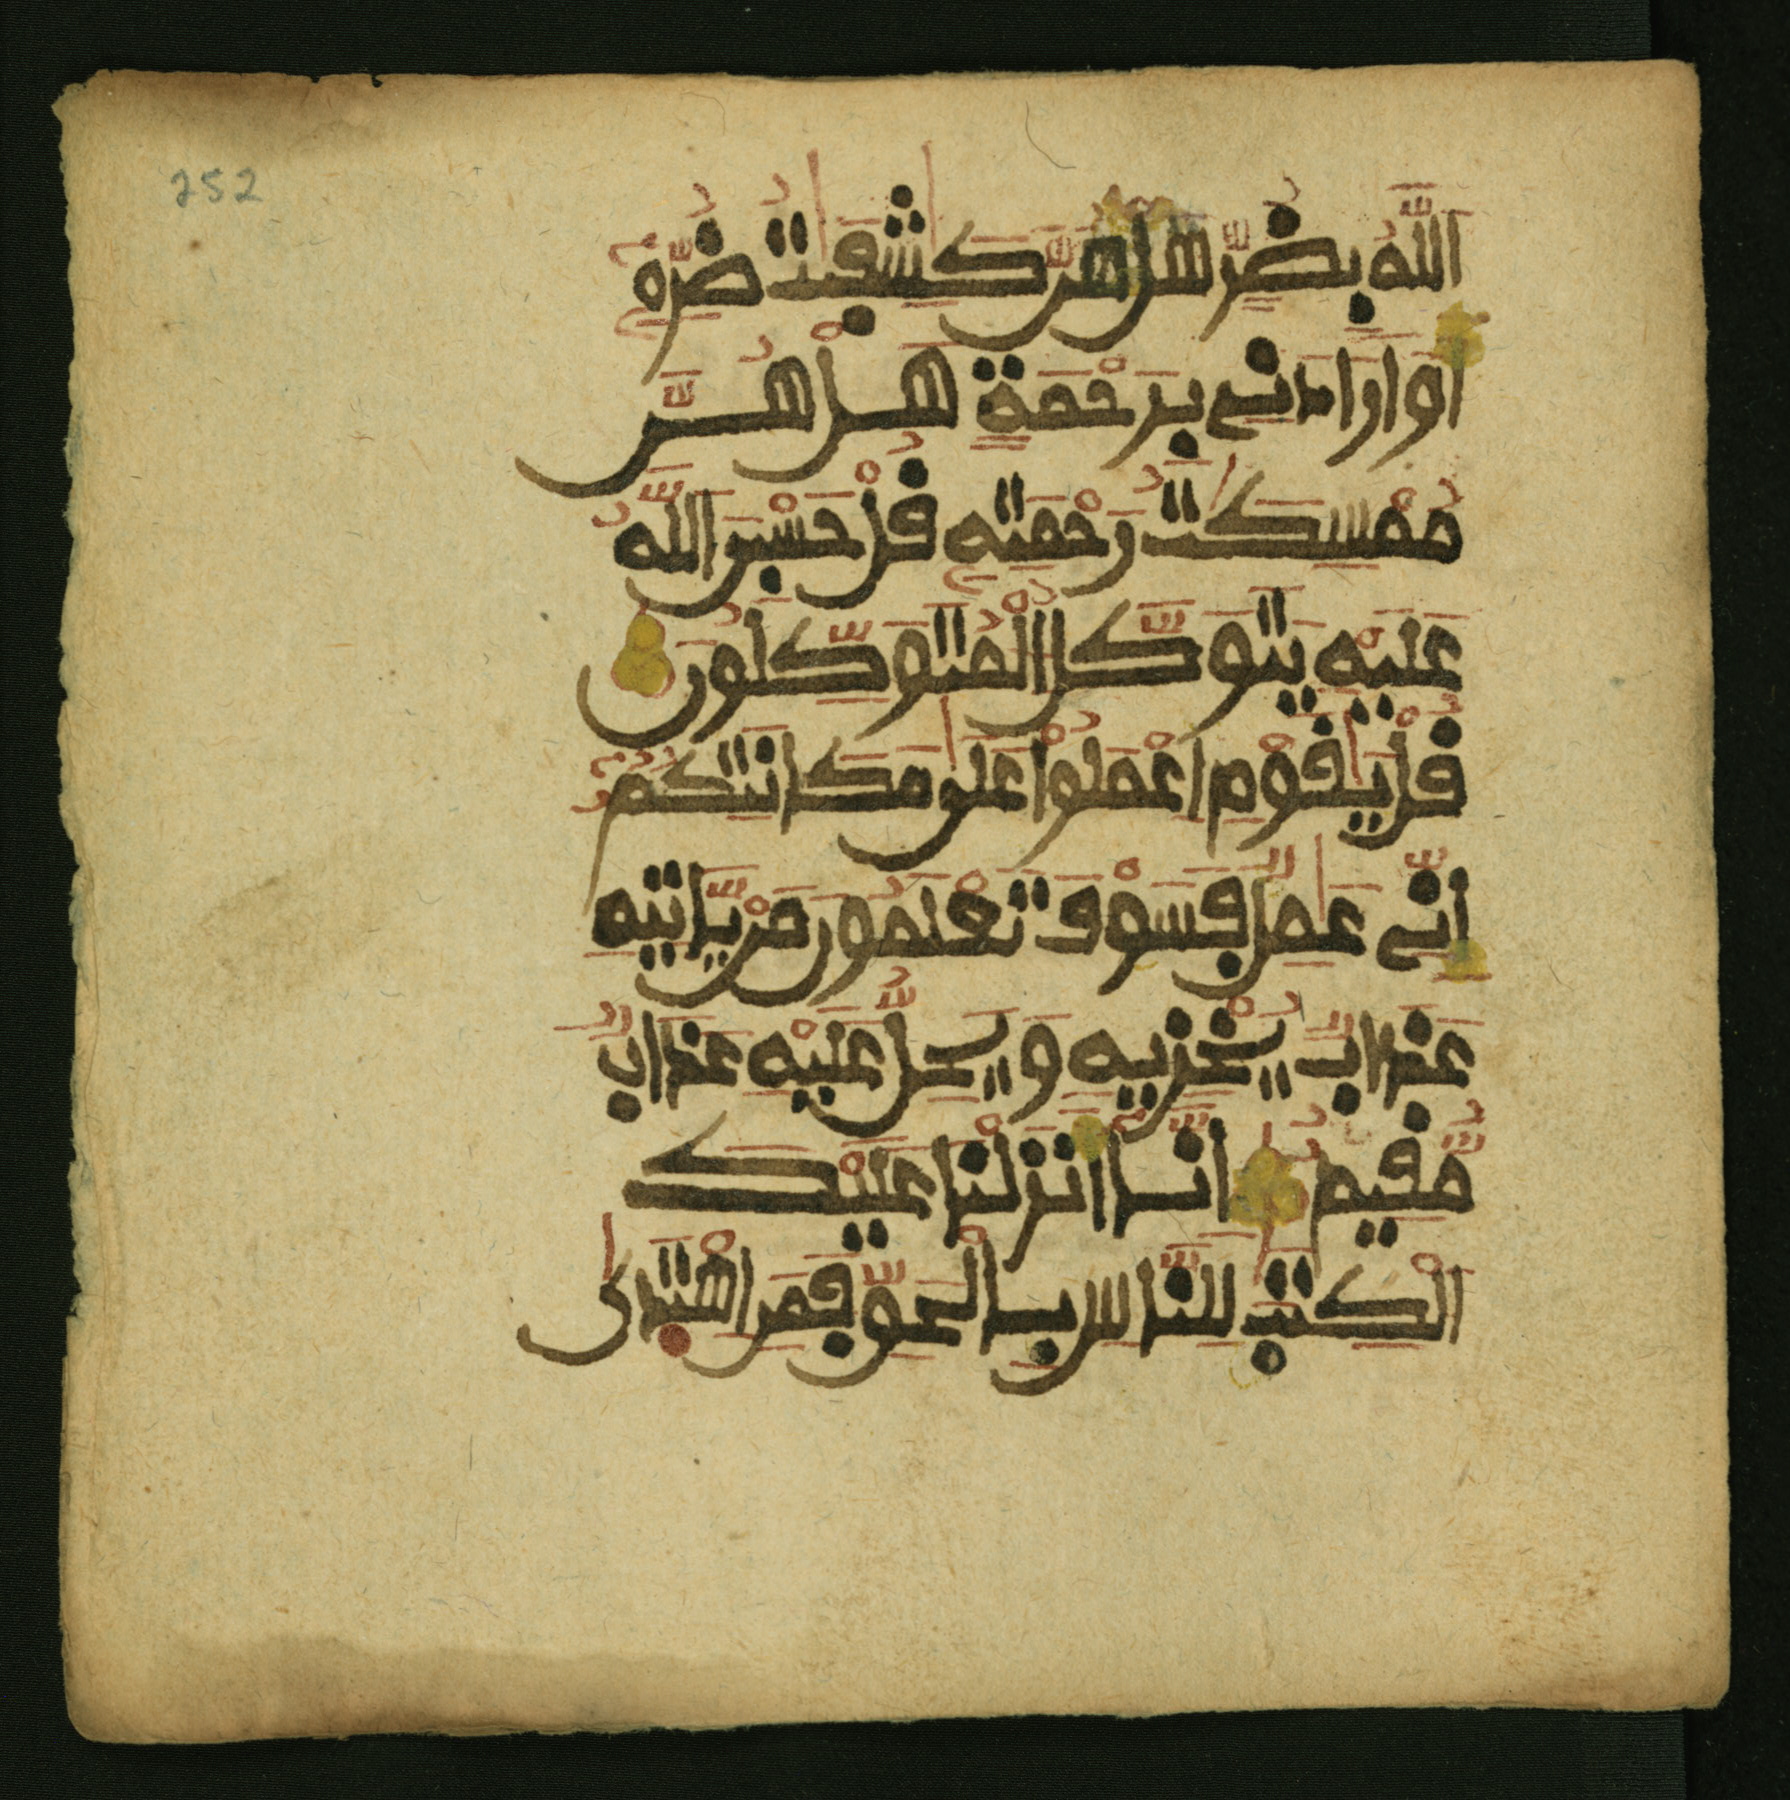 252
اللَّهُ بِضُرٍّ هَلْ هُنَّ كَٰشِفَٰتُ ضُرِّهِ
أَوْ أَرَادَنِي بِرَحْمَةٍ هَلْ هُنَّ
مُمْسِكَٰتُ رَحْمَتِهِ قُلْ حَسْبِيَ اللَّهُ
عَلَيْهِ يَتَوَكَّلُ الْمُتَوَكِّلُونَ
قُلْ يَٰقَوْمِ اعْمَلُوا عَلَىٰ مَكَانَتِكُمْ
إِنِّي عَٰمِلٌ فَسَوْفَ تَعْلَمُونَ مَنْ يَّأْتِيهِ
عَذَابٌ يُّخْزِيهِ وَيَحِلُّ عَلَيْهِ عَذَابٌ
مُّقِيمٌ إِنَّا أَنْزَلْنَا عَلَيْكَ
الْكِتَٰبَ لِلنَّاسِ بِالْحَقِّ فَمَنِ اهْتَدَىٰ